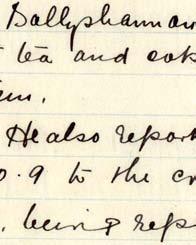 Ballyshannon
tea and
He also report
0.9 to the
being rep